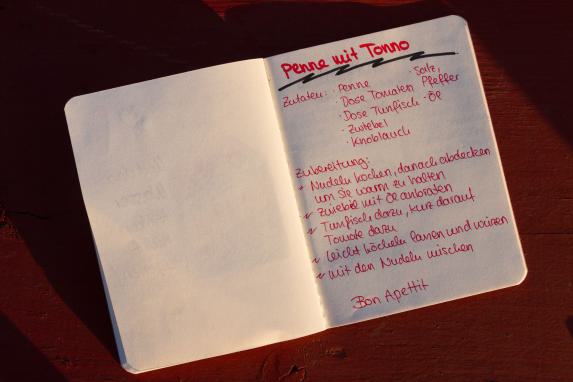 Penne mit Tonno
Zutaten: · Penne · Salz,
· Dose Tomaten Pfeffer
· Dose Tunfisch · Öl
· Zwiebel
· Knoblauch
Zubereitung:
Nudeln kochen, danach abdecken
um sie warm zu halten
Zwiebel mit Öl anbraten
Tunfisch dazu, kurz darauf
Tomate dazu
leicht köcheln lassen und würzen
mit den Nudeln mischen
Bon Apettit